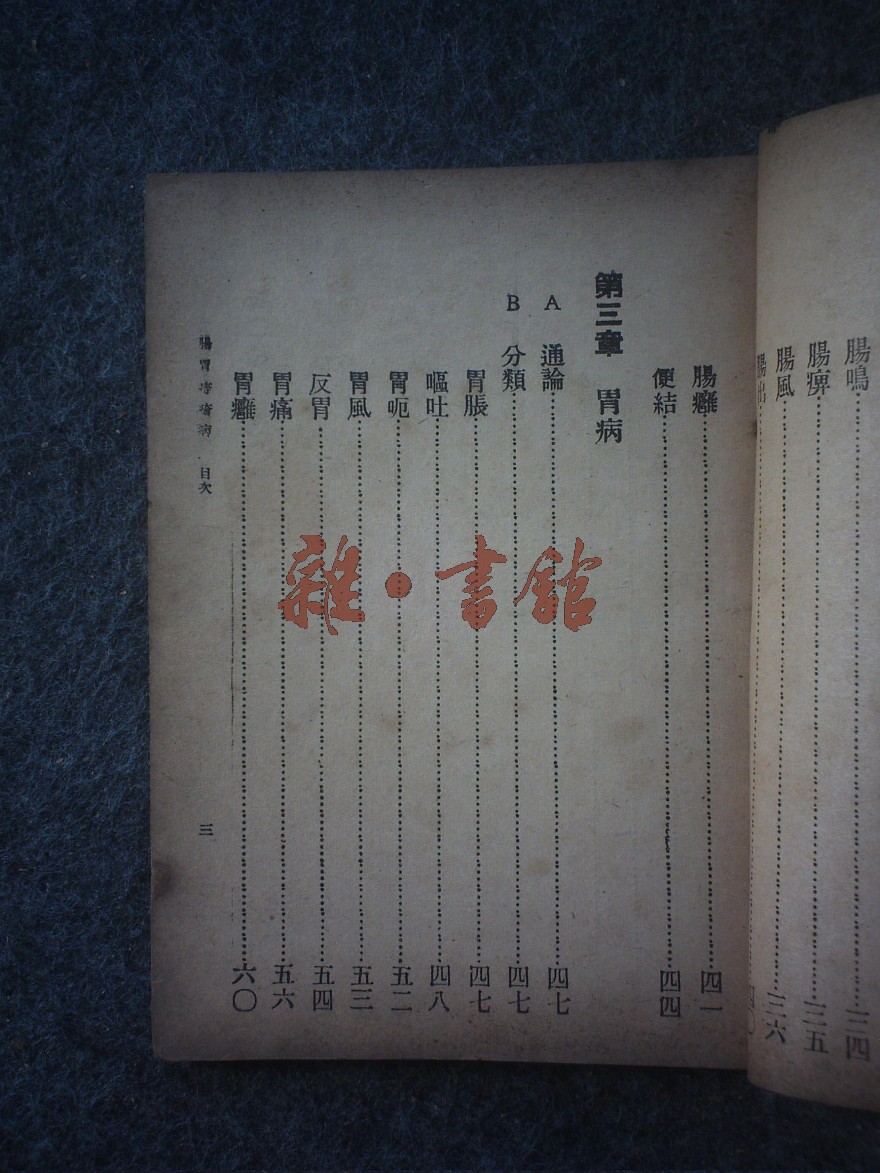 腸鳴……三四
腸痹……三五
腸風……三六
腸出……四〇
腸癰……四一
便結……四四
第三章 胃病
A 通論……四七
B 分類……四七
胃脹……四七
嘔吐……四八
胃呃……五二
胃風……五三
反胃……五四
胃痛……五六
胃癰……六〇
腸胃痔瘡病 目次
三
雜·書館